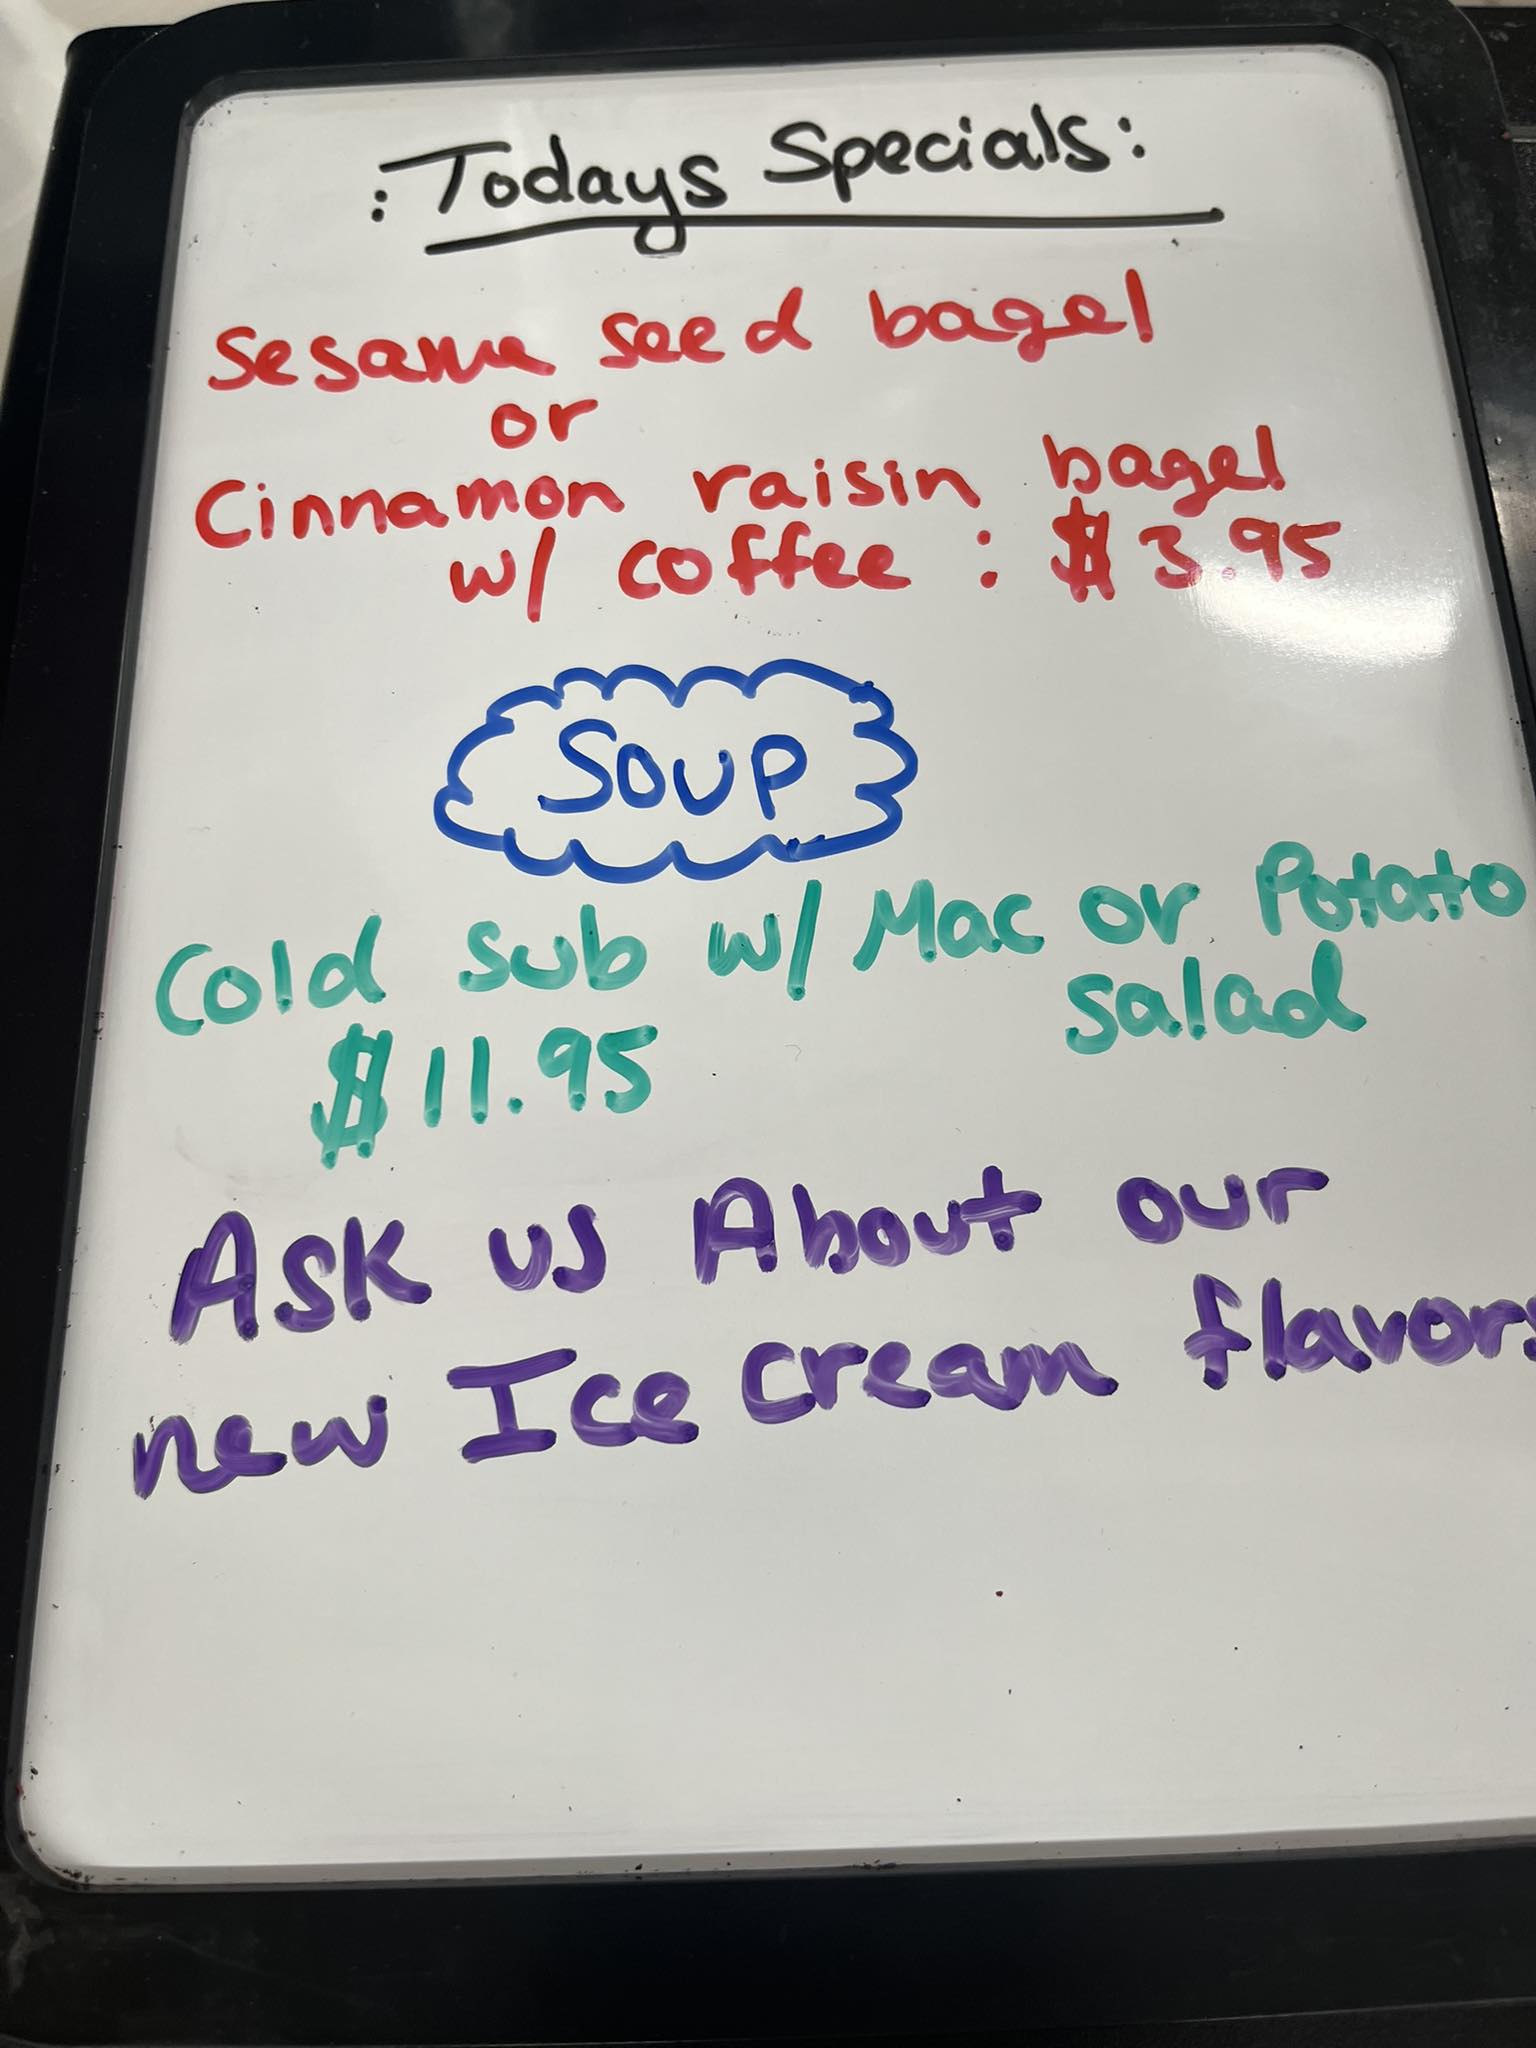 : Todays Specials:
Sesame seed bagel
or
Cinnamon raisin bagel
w/ coffee : $3.95
SOUP
Cold sub w/ Mac or Potato
salad
$11.95
Ask us About our
new Ice cream flavors